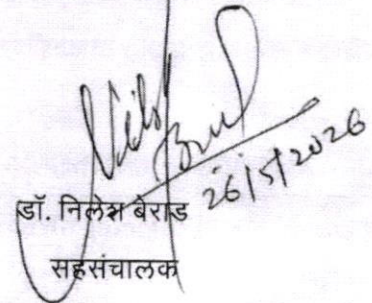 26/5/2026
डॉ. निलेश बेराड
सहसंचालक